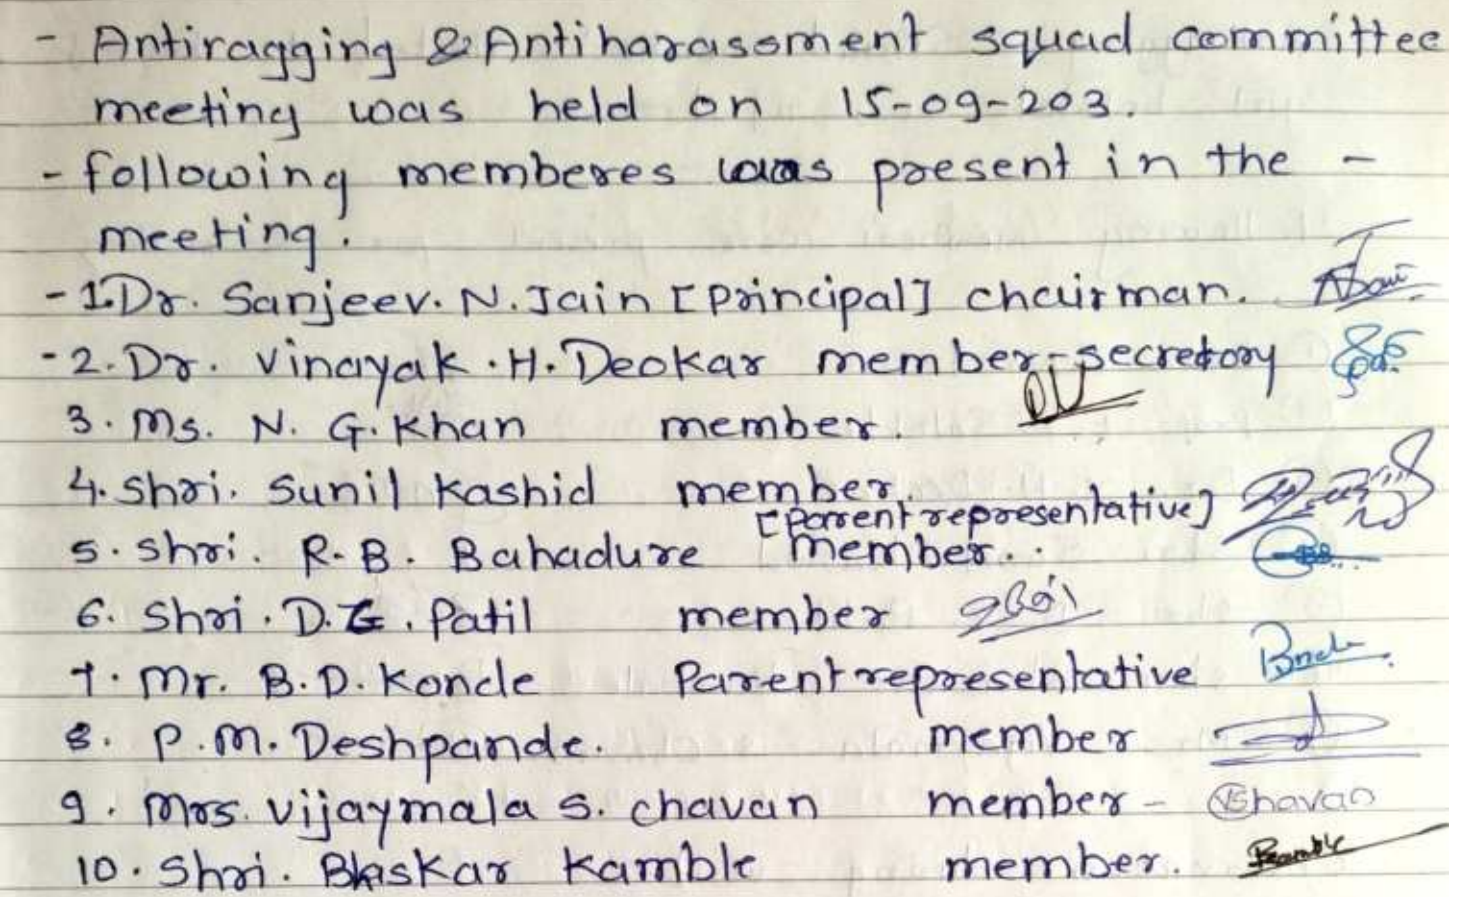 - Antiragging & Antiharassment squad committee
meeting was held on 15-09-203.
- following memberes was present in the -
meeting.
- 1. Dr. Sanjeev. N. Jain [Principal] chairman.
- 2. Dr. Vinayak . H. Deokar member-secretory
3. Ms. N. G. Khan member.
4. Shri. Sunil Kashid member.
[Parent representative]
5. Shri. R. B. Bahadure member..
6. Shri. D. G. Patil member
7. Mr. B. D. Konde Parent representative
8. P. M. Deshpande. member
9. Mrs. Vijaymala S. Chavan member - VShavan
10. Shri. Bhaskar Kamble member.